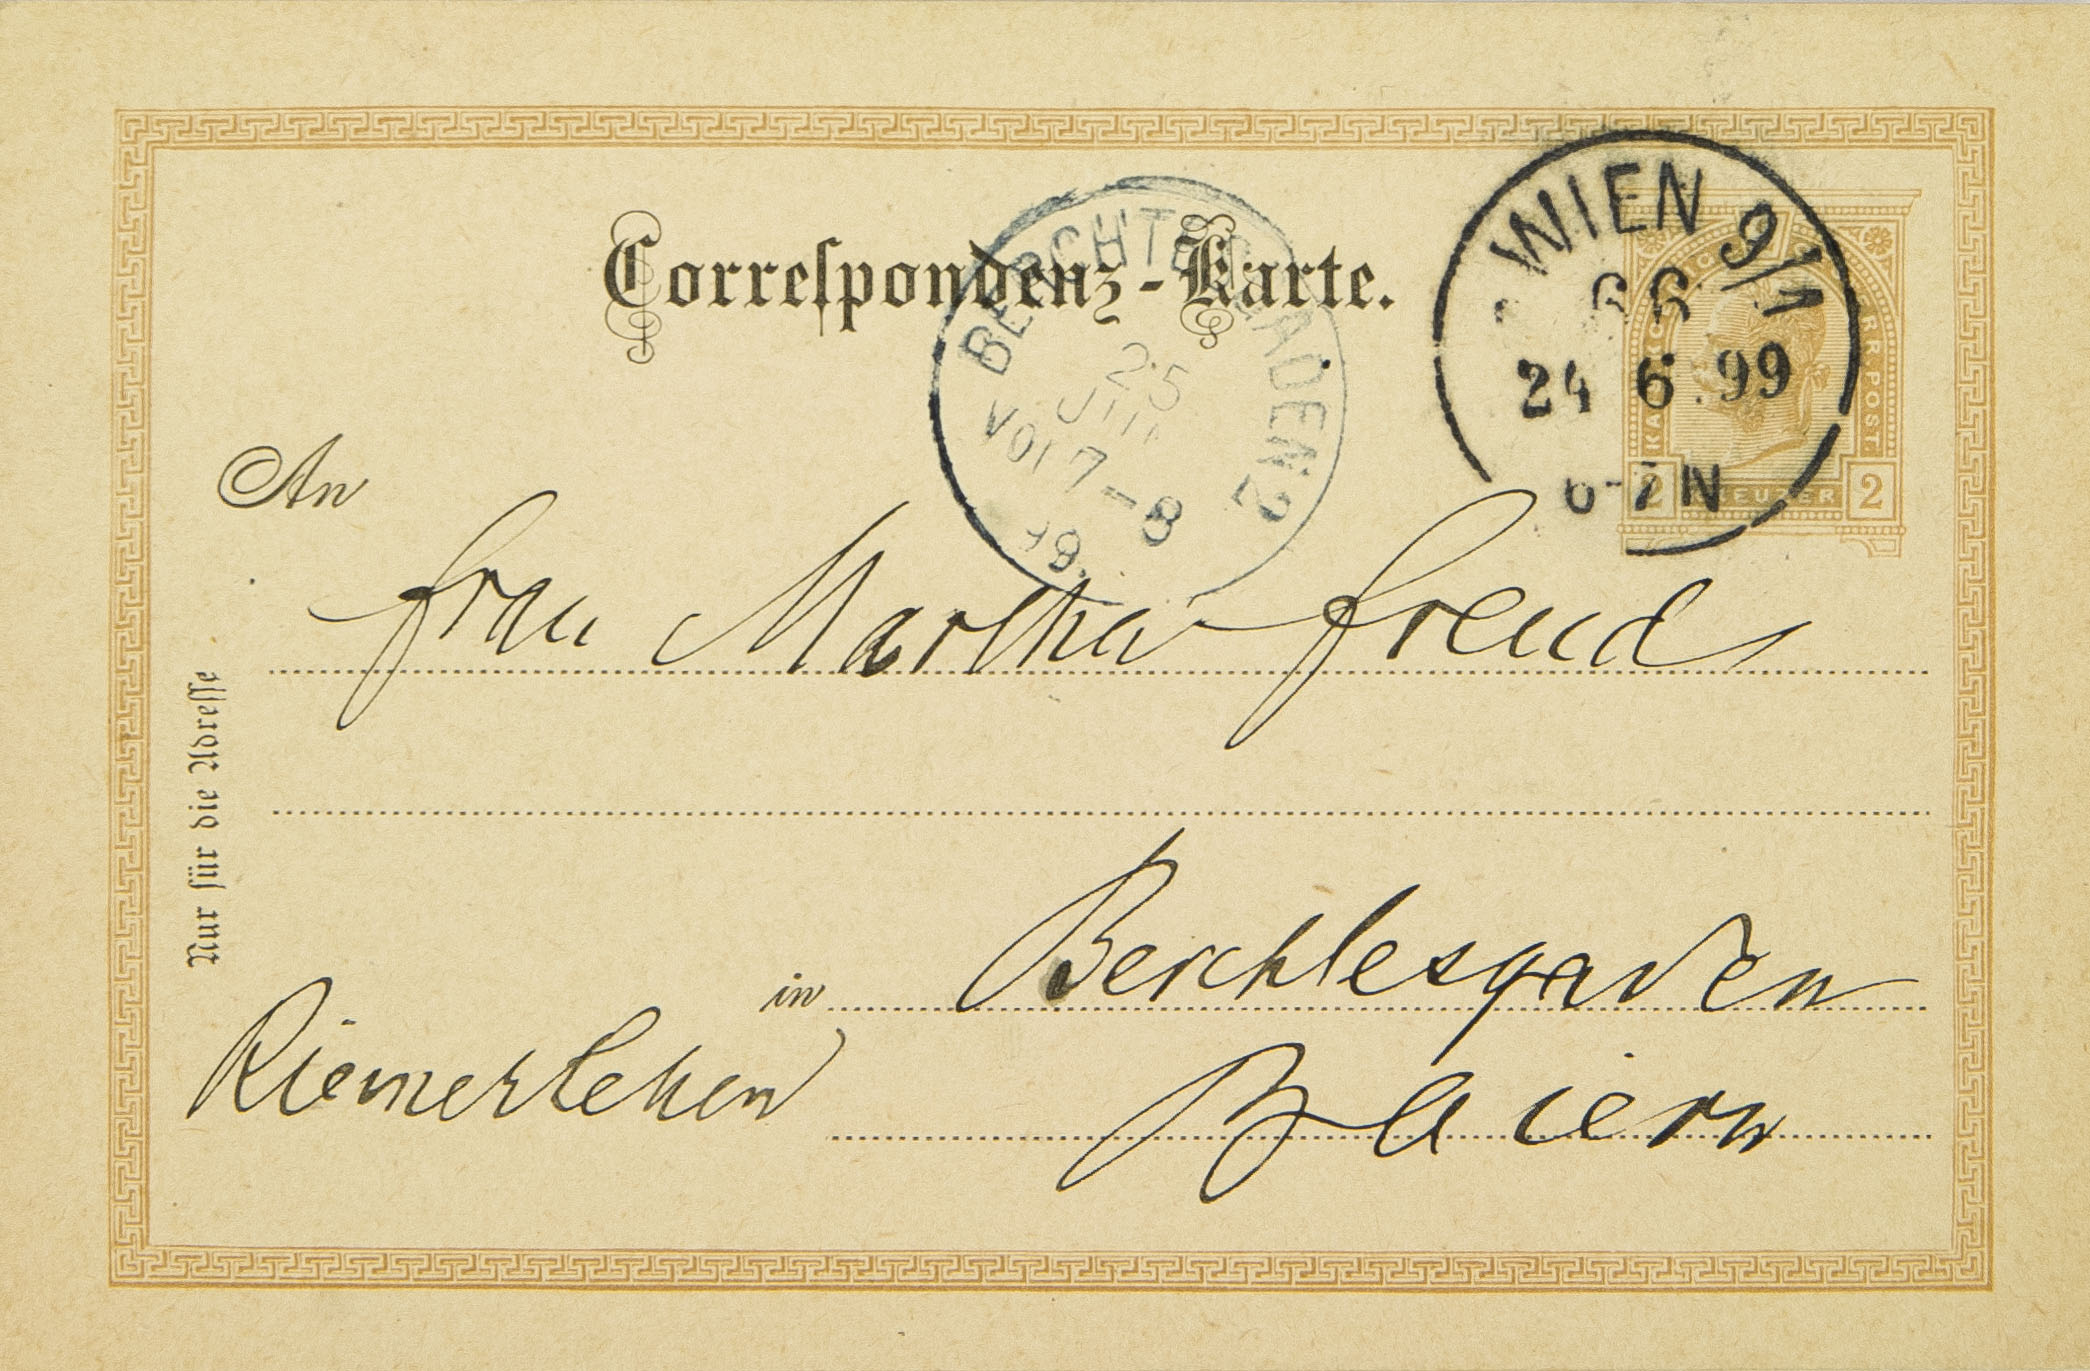 Correspondenz-Karte.
WIEN 9/1
66
24 6.99
6-7N
KAIS. KOENIGL. OESTERR. POST.
2 KREUZER 2
BERCHTESGADEN 2
25
JUN
Vor 7-8
99.
An
Frau Martha Freud
Nur für die Adresse
in Berchtesgaden
Riemerlehen
Baiern